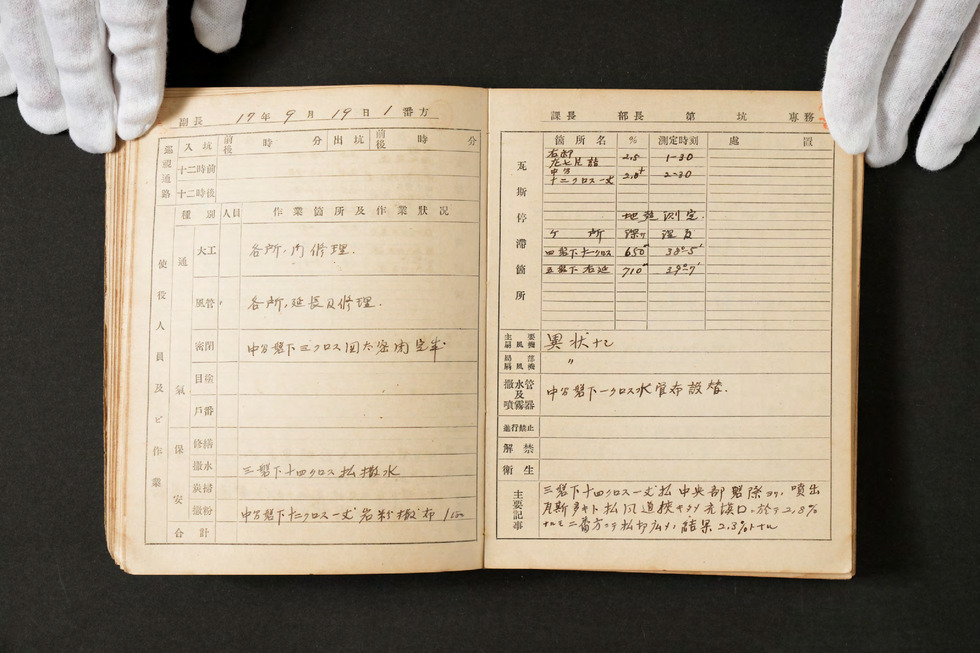 副長 17年 9月 19日 1番方
巡視通路 入坑 前後 時 分 出坑 前後 時 分
十二時前
十二時後
使役人員及ビ作業
種別 人員 作業箇所及作業狀況
通氣
大工 各所ノ門修理.
風管 各所ノ延長及修理.
密閉
目塗
戸番
保安
修繕
撒水 三盤下十四クロス払撒水
炭掃
撒粉 中切盤下十二クロス一丈岩粉撒布
合計
課長 部長 第 坑 専務
瓦斯停滞箇所
箇所名 % 測定時刻 處置
2.5 1-30
十二クロス一丈 2.0+ 2-30
地熱測定.
ケ所 深サ 温度
四盤下十二クロス 650m 38°-5'
五盤下右延 710m 39°-7'
主要扇風機 異状ナシ
局部扇風機 〃
撒水管及噴霧器 中切盤下一クロス水管布設替.
進行禁止
解禁
衛生
主要記事
三盤下十四クロス一丈払中央部盤際ヨリ噴出
瓦斯多ク払風道狭キタメ 於テ2.8%
ナルモ二番方ニテ払切広メ結果2.3%トナル